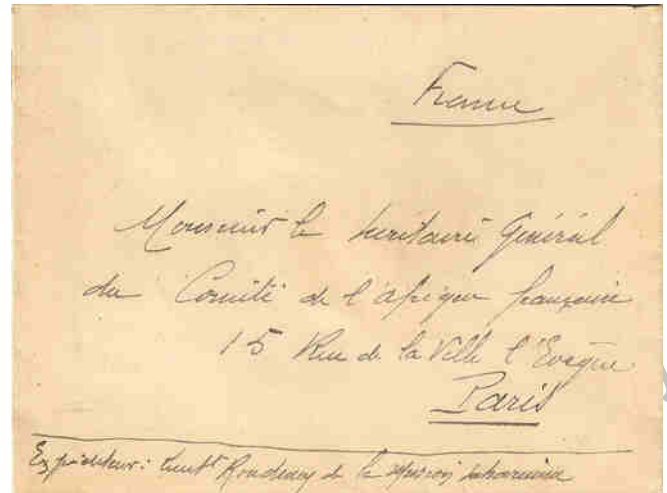 France
Monsieur le Secrétaire Général
du Comité de l'Afrique française
15 Rue de la Ville l'Evêque
Paris
Expéditeur: Lieut de la mission saharienne